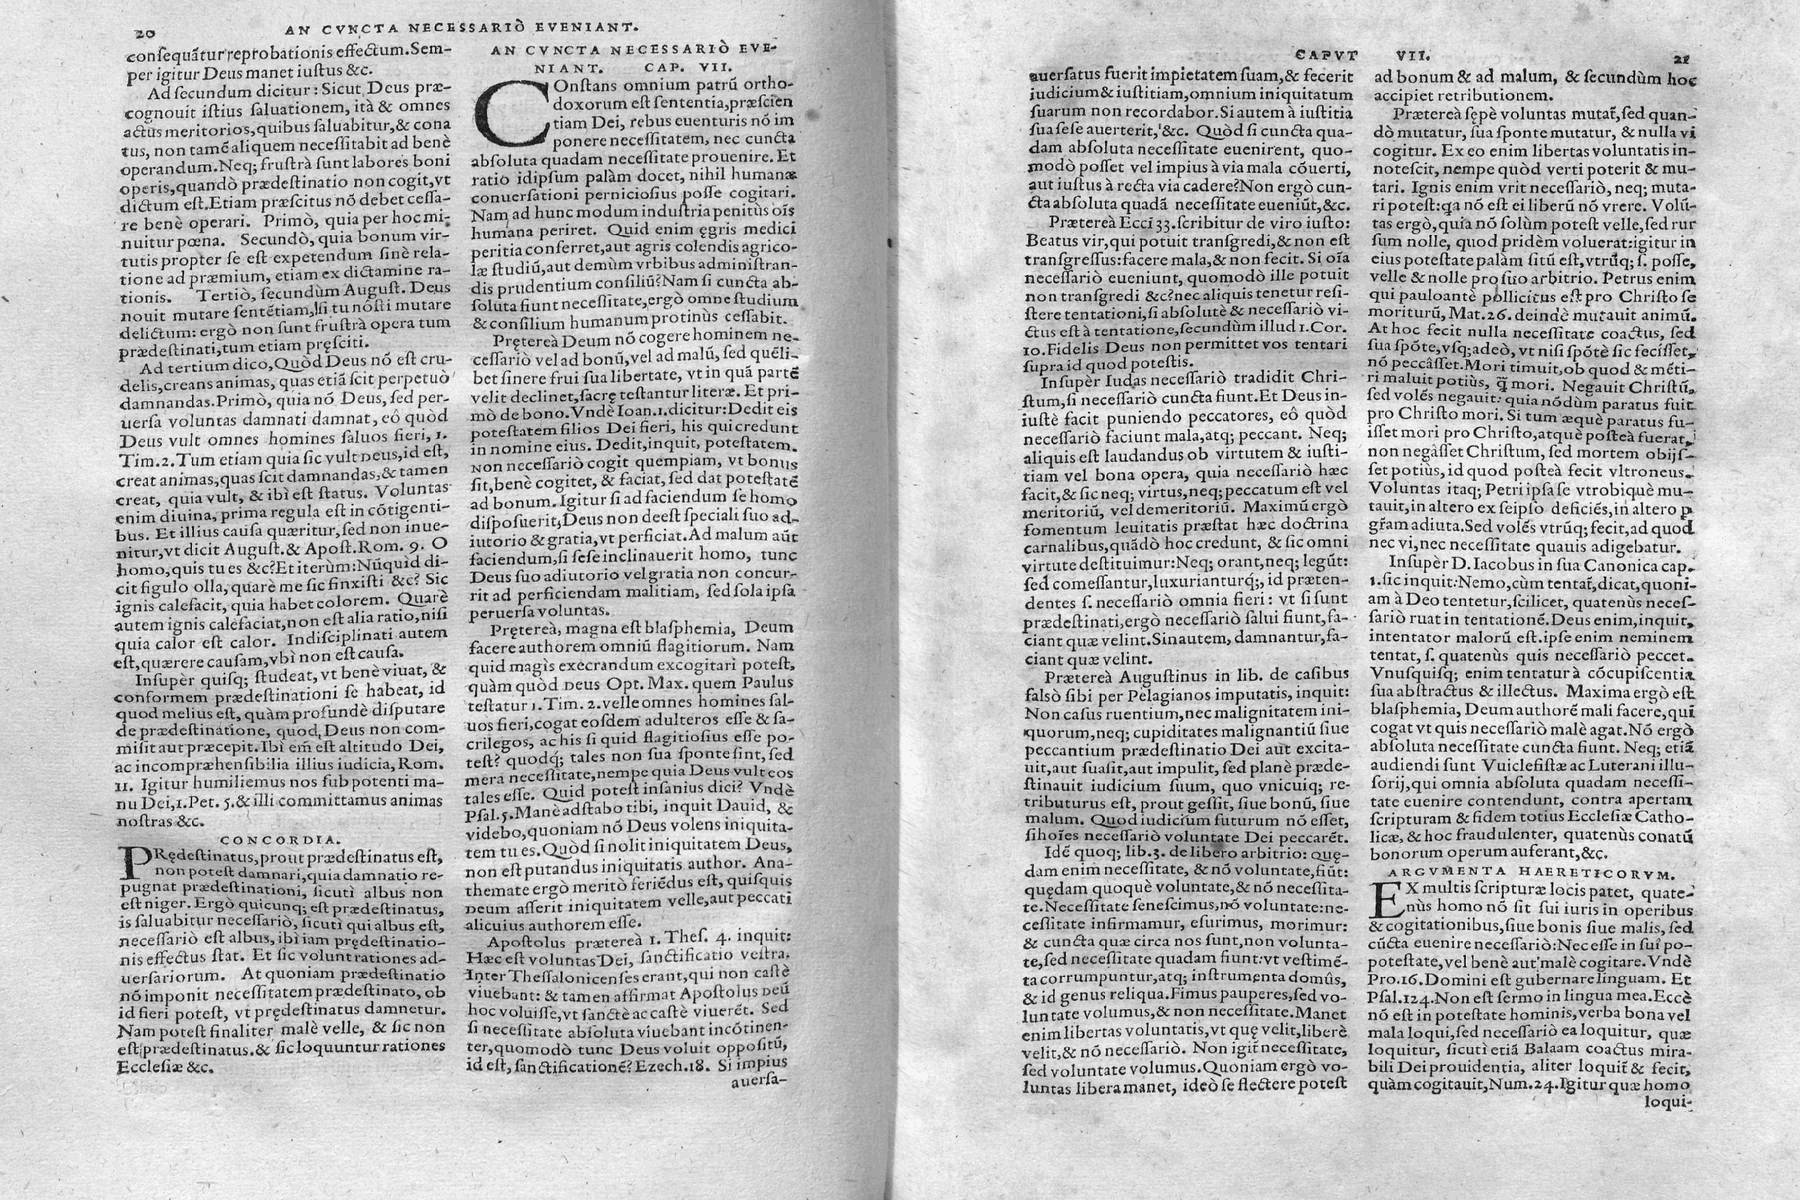 20
AN CVNCTA NECESSARIÒ EVENIANT.
consequãtur reprobationis effectum. Sem-
per igitur Deus manet iustus &c.
Ad secundum dicitur: Sicut Deus præ-
cognouit istius saluationem, itá & omnes
actus meritorios, quibus saluabitur, & cona
tus, non tamẽ aliquem necessitabit ad benè
operandum. Neq; frustrà sunt labores boni
operis, quandò prædestinatio non cogit, vt
dictum est. Etiam præscitus nõ debet cessa-
re benè operari. Primò, quia per hoc mi-
nuitur pœna. Secundò, quia bonum vir-
tutis propter se est expetendum sinè rela-
tione ad præmium, etiam ex dictamine ra-
tionis. Tertiò, secundùm August. Deus
nouit mutare sentẽtiam, si tu nósti mutare
delictum: ergò non sunt frustrà opera tum
prædestinati, tum etiam pręsciti.
Ad tertium dico, Quòd Deus nõ est cru-
delis, creans animas, quas etiã scit perpetuò
damnandas. Primò, quia nõ Deus, sed per-
uersa voluntas damnati damnat, eô quòd
Deus vult omnes homines saluos fieri, 1.
Tim. 2. Tum etiam quia sic vult Deus, id est,
creat animas, quas scit damnandas, & tamen
creat, quia vult, & ibì est status. Voluntas
enim diuina, prima regula est in cõtigenti-
bus. Et illius causa quæritur, sed non inue-
nitur, vt dicit August. & Apost. Rom. 9. O
homo, quis tu es &c? Et iterùm: Nũquid di-
cit figulo olla, quarè me sic finxisti &c? Sic
ignis calefacit, quia habet colorem. Quarè
autem ignis calefaciat, non est alia ratio, nisi
quia calor est calor. Indisciplinati autem
est, quærere causam, vbì non est causa.
Insupèr quisq; studeat, vt benè viuat, &
conformem prædestinationi se habeat, id
quod melius est, quàm profundè disputare
de prædestinatione, quod, Deus non com-
misit aut præcepit. Ibi em̃ est altitudo Dei,
ac incompræhensibilia illius iudicia, Rom.
11. Igitur humiliemus nos sub potenti ma-
nu Dei, 1. Pet. 5. & illi committamus animas
nostras &c.
CONCORDIA.
PRędestinatus, prout prædestinatus est,
non potest damnari, quia damnatio re-
pugnat prædestinationi, sicuti albus non
est niger. Ergò quicunq; est prædestinatus,
is saluabitur necessariò, sicuti qui albus est,
necessariò est albus, ibi iam prędestinatio-
nis effectus stat. Et sic volunt rationes ad-
uersariorum. At quoniam prædestinatio
nõ imponit necessitatem prædestinato, ob
id fieri potest, vt prędestinatus damnetur.
Nam potest finaliter malè velle, & sic non
est prædestinatus. & sic loquuntur rationes
Ecclesiæ &c.
AN CVNCTA NECESSARIÒ EVE-
NIANT. CAP. VII.
COnstans omnium patrũ ortho-
doxorum est sententia, præscien
tiam Dei, rebus euenturis nõ im
ponere necessitatem, nec cuncta
absoluta quadam necessitate prouenire. Et
ratio idipsum palàm docet, nihil humanæ
conuersationi perniciosius posse cogitari.
Nam ad hunc modum industria penitùs oĩs
humana periret. Quid enim ęgris medici
peritia conferret, aut agris colendis agrico-
læ studiũ, aut demùm vrbibus administran-
dis prudentium consiliũ? Nam si cuncta ab-
soluta fiunt necessitate, ergò omne studium
& consilium humanum protinùs cessabit.
Pręterea Deum nõ cogere hominem ne-
cessariò vel ad bonũ, vel ad malũ, sed quẽli-
bet sinere frui sua libertate, vt in quã partẽ
velit declinet, sacrę testantur literæ. Et pri-
mò de bono. Vndè Ioan. 1. dicitur: Dedit eis
potestatem filios Dei fieri, his qui credunt
in nomine eius. Dedit, inquit, potestatem.
Non necessariò cogit quempiam, vt bonus
sit, benè cogitet, & faciat, sed dat potestatẽ
ad bonum. Igitur si ad faciendum se homo
disposuerit, Deus non deest speciali suo ad-
iutorio & gratia, vt perficiat. Ad malum aũt
faciendum, si sese inclinauerit homo, tunc
Deus suo adiutorio vel gratia non concur-
rit ad perficiendam malitiam, sed sola ipsa
peruersa voluntas.
Pręterea, magna est blasphemia, Deum
facere authorem omniũ flagitiorum. Nam
quid magìs execrandum excogitari potest,
quàm quòd Deus Opt. Max. quem Paulus
testatur 1. Tim. 2. velle omnes homines sal-
uos fieri, cogat eosdem adulteros esse & sa-
crilegos, ac his si quid flagitiosius esse po-
test? quodq́; tales non sua sponte sint, sed
mera necessitate, nempe quia Deus vult eos
tales esse. Quid potest insanius dici? Vndè
Psal. 5. Manè adstabo tibi, inquit Dauid, &
videbo, quoniam nõ Deus volens iniquita-
tem tu es. Quòd si nolit iniquitatem Deus,
non est putandus iniquitatis author. Ana-
themate ergò meritò feriẽdus est, quisquis
Deum asserit iniquitatem velle, aut peccati
alicuius authorem esse.
Apostolus præterea 1. Thes. 4. inquit:
Hæc est voluntas Dei, sanctificatio vestra.
Inter Thessalonicenses erant, qui non castè
viuebant: & tamen affirmat Apostolus Deũ
hoc voluisse, vt sanctè ac castè viuerẽt. Sed
si necessitate absoluta viuebant incõtinen-
ter, quomodò tunc Deus voluit oppositũ,
id est, sanctificationẽ? Ezech. 18. Si impius
auersa-
CAPVT VII.
21
auersatus fuerit impietatem suam, & fecerit
iudicium & iustitiam, omnium iniquitatum
suarum non recordabor. Si autem à iustitia
sua sese auerterit, &c. Quòd si cuncta qua-
dam absoluta necessitate euenirent, quo-
modò posset vel impius à via mala cõuerti,
aut iustus à recta via cadere? Non ergò cun-
cta absoluta quadã necessitate eueniũt, &c.
Prætereà Eccl 33. scribitur de viro iusto:
Beatus vir, qui potuit transgredi, & non est
transgressus: facere mala, & non fecit. Si oĩa
necessariò eueniunt, quomodò ille potuit
non transgredi &c? nec aliquis tenetur resi-
stere tentationi, si absolutè & necessariò vi-
ctus est à tentatione, secundùm illud 1. Cor.
10. Fidelis Deus non permittet vos tentari
supra id quod potestis.
Insupèr Iudas necessariò tradidit Chri-
stum, si necessariò cuncta fiunt. Et Deus in-
iustè facit puniendo peccatores, eô quòd
necessariò faciunt mala, atq; peccant. Neq;
aliquis est laudandus ob virtutem & iusti-
tiam vel bona opera, quia necessariò hæc
facit, & sic neq; virtus, neq; peccatum est vel
meritoriũ, vel demeritoriũ. Maximũ ergò
fomentum leuitatis præstat hæc doctrina
carnalibus, quãdò hoc credunt, & sic omni
virtute destituimur: Neq; orant, neq; legũt:
sed comessantur, luxurianturq́;, id præten-
dentes s. necessariò omnia fieri: vt si sunt
prædestinati, ergò necessariò salui fiunt, fa-
ciant quæ velint. Sin autem, damnantur, fa-
ciant quæ velint.
Prætereà Augustinus in lib. de casibus
falsò sibi per Pelagianos imputatis, inquit:
Non casus ruentium, nec malignitatem ini-
quorum, neq; cupiditates malignantiũ siue
peccantium prædestinatio Dei aut excita-
uit, aut suasit, aut impulit, sed planè præde-
stinauit iudicium suum, quo vnicuiq; re-
tributurus est, prout gessit, siue bonũ, siue
malum. Quod iudicium futurum nõ esset,
si hoĩes necessariò voluntate Dei peccarẽt.
Idẽ quoq; lib. 3. de libero arbitrio: Quę-
dam enim necessitate, & nõ voluntate, fiũt:
quędam quoquè voluntate, & nõ necessita-
te. Necessitate senescimus, nõ voluntate: ne-
cessitate infirmamur, esurimus, morimur:
& cuncta quæ circa nos sunt, non volunta-
te, sed necessitate quadam fiunt: vt vestimẽ-
ta corrumpuntur, atq; instrumenta domûs,
& id genus reliqua. Fimus pauperes, sed vo-
luntate volumus, & non necessitate. Manet
enim libertas voluntatis, vt quę velit, liberè
velit, & nõ necessariò. Non igit̃ necessitate,
sed voluntate volumus. Quoniam ergò vo-
luntas libera manet, ideò se flectere potest
ad bonum & ad malum, & secundùm hoc
accipiet retributionem.
Prætereà sępè voluntas mutat̃, sed quan-
dò mutatur, sua sponte mutatur, & nulla vi
cogitur. Ex eo enim libertas voluntatis in-
notescit, nempe quòd verti poterit & mu-
tari. Ignis enim vrit necessariò, neq; muta-
ri potest: qa nõ est ei liberũ nõ vrere. Volũ-
tas ergò, quia nõ solùm potest velle, sed rur
sum nolle, quod pridèm voluerat: igitur in
eius potestate palàm sitũ est, vtrũq; s. posse,
velle & nolle pro suo arbitrio. Petrus enim
qui pauloantè pollicitus est pro Christo se
moriturũ, Mat. 26. deindè mutauit animũ.
At hoc fecit nulla necessitate coactus, sed
sua spõte, vsq; adeò, vt nisi spõtè sic fecisset,
nõ peccâsset. Mori timuit, ob quod & mẽti-
ri maluit potiùs, q̃ mori. Negauit Christũ,
sed volẽs negauit: quia nõdùm paratus fuit
pro Christo mori. Si tum æquè paratus fu-
isset mori pro Christo, atquè posteà fuerat,
non negâsset Christum, sed mortem obijs-
set potiùs, id quod posteà fecit vltroneus.
Voluntas itaq; Petri ipsa se vtrobiquè mu-
tauit, in altero ex seipso deficiẽs, in altero ꝑ
gr̃am adiuta. Sed volẽs vtrũq; fecit, ad quod
nec vi, nec necessitate quauis adigebatur.
Insupèr D. Iacobus in sua Canonica cap.
1. sic inquit: Nemo, cùm tentat̃, dicat, quoni-
am à Deo tentetur, scilicet, quatenùs neces-
sariò ruat in tentationẽ. Deus enim, inquit,
intentator malorũ est. ipse enim neminem
tentat, s. quatenùs quis necessariò peccet.
Vnusquisq; enim tentatur à cõcupiscentia
sua abstractus & illectus. Maxima ergò est
blasphemia, Deum authorẽ mali facere, qui
cogat vt quis necessariò malè agat. Nõ ergò
absoluta necessitate cuncta fiunt. Neq; etiã
audiendi sunt Vuiclefistæ ac Luterani illu-
sorij, qui omnia absoluta quadam necessi-
tate euenire contendunt, contra apertam
scripturam & fidem totius Ecclesiæ Catho-
licæ, & hoc fraudulenter, quatenùs conatũ
bonorum operum auferant, &c.
ARGVMENTA HAERETICORVM.
EX multis scripturæ locis patet, quate-
nùs homo nõ sit sui iuris in operibus
& cogitationibus, siue bonis siue malis, sed
cũcta euenire necessariò: Necesse in sui po-
potestate, vel benè aut malè cogitare. Vndè
Pro. 16. Domini est gubernare linguam. Et
Psal. 124. Non est sermo in lingua mea. Eccè
nõ est in potestate hominis, verba bona vel
mala loqui, sed necessariò ea loquitur, quæ
loquitur, sicuti etiã Balaam coactus mira-
bili Dei prouidentia, aliter loquit̃ & fecit,
quàm cogitauit, Num. 24. Igitur quæ homo
loqui-